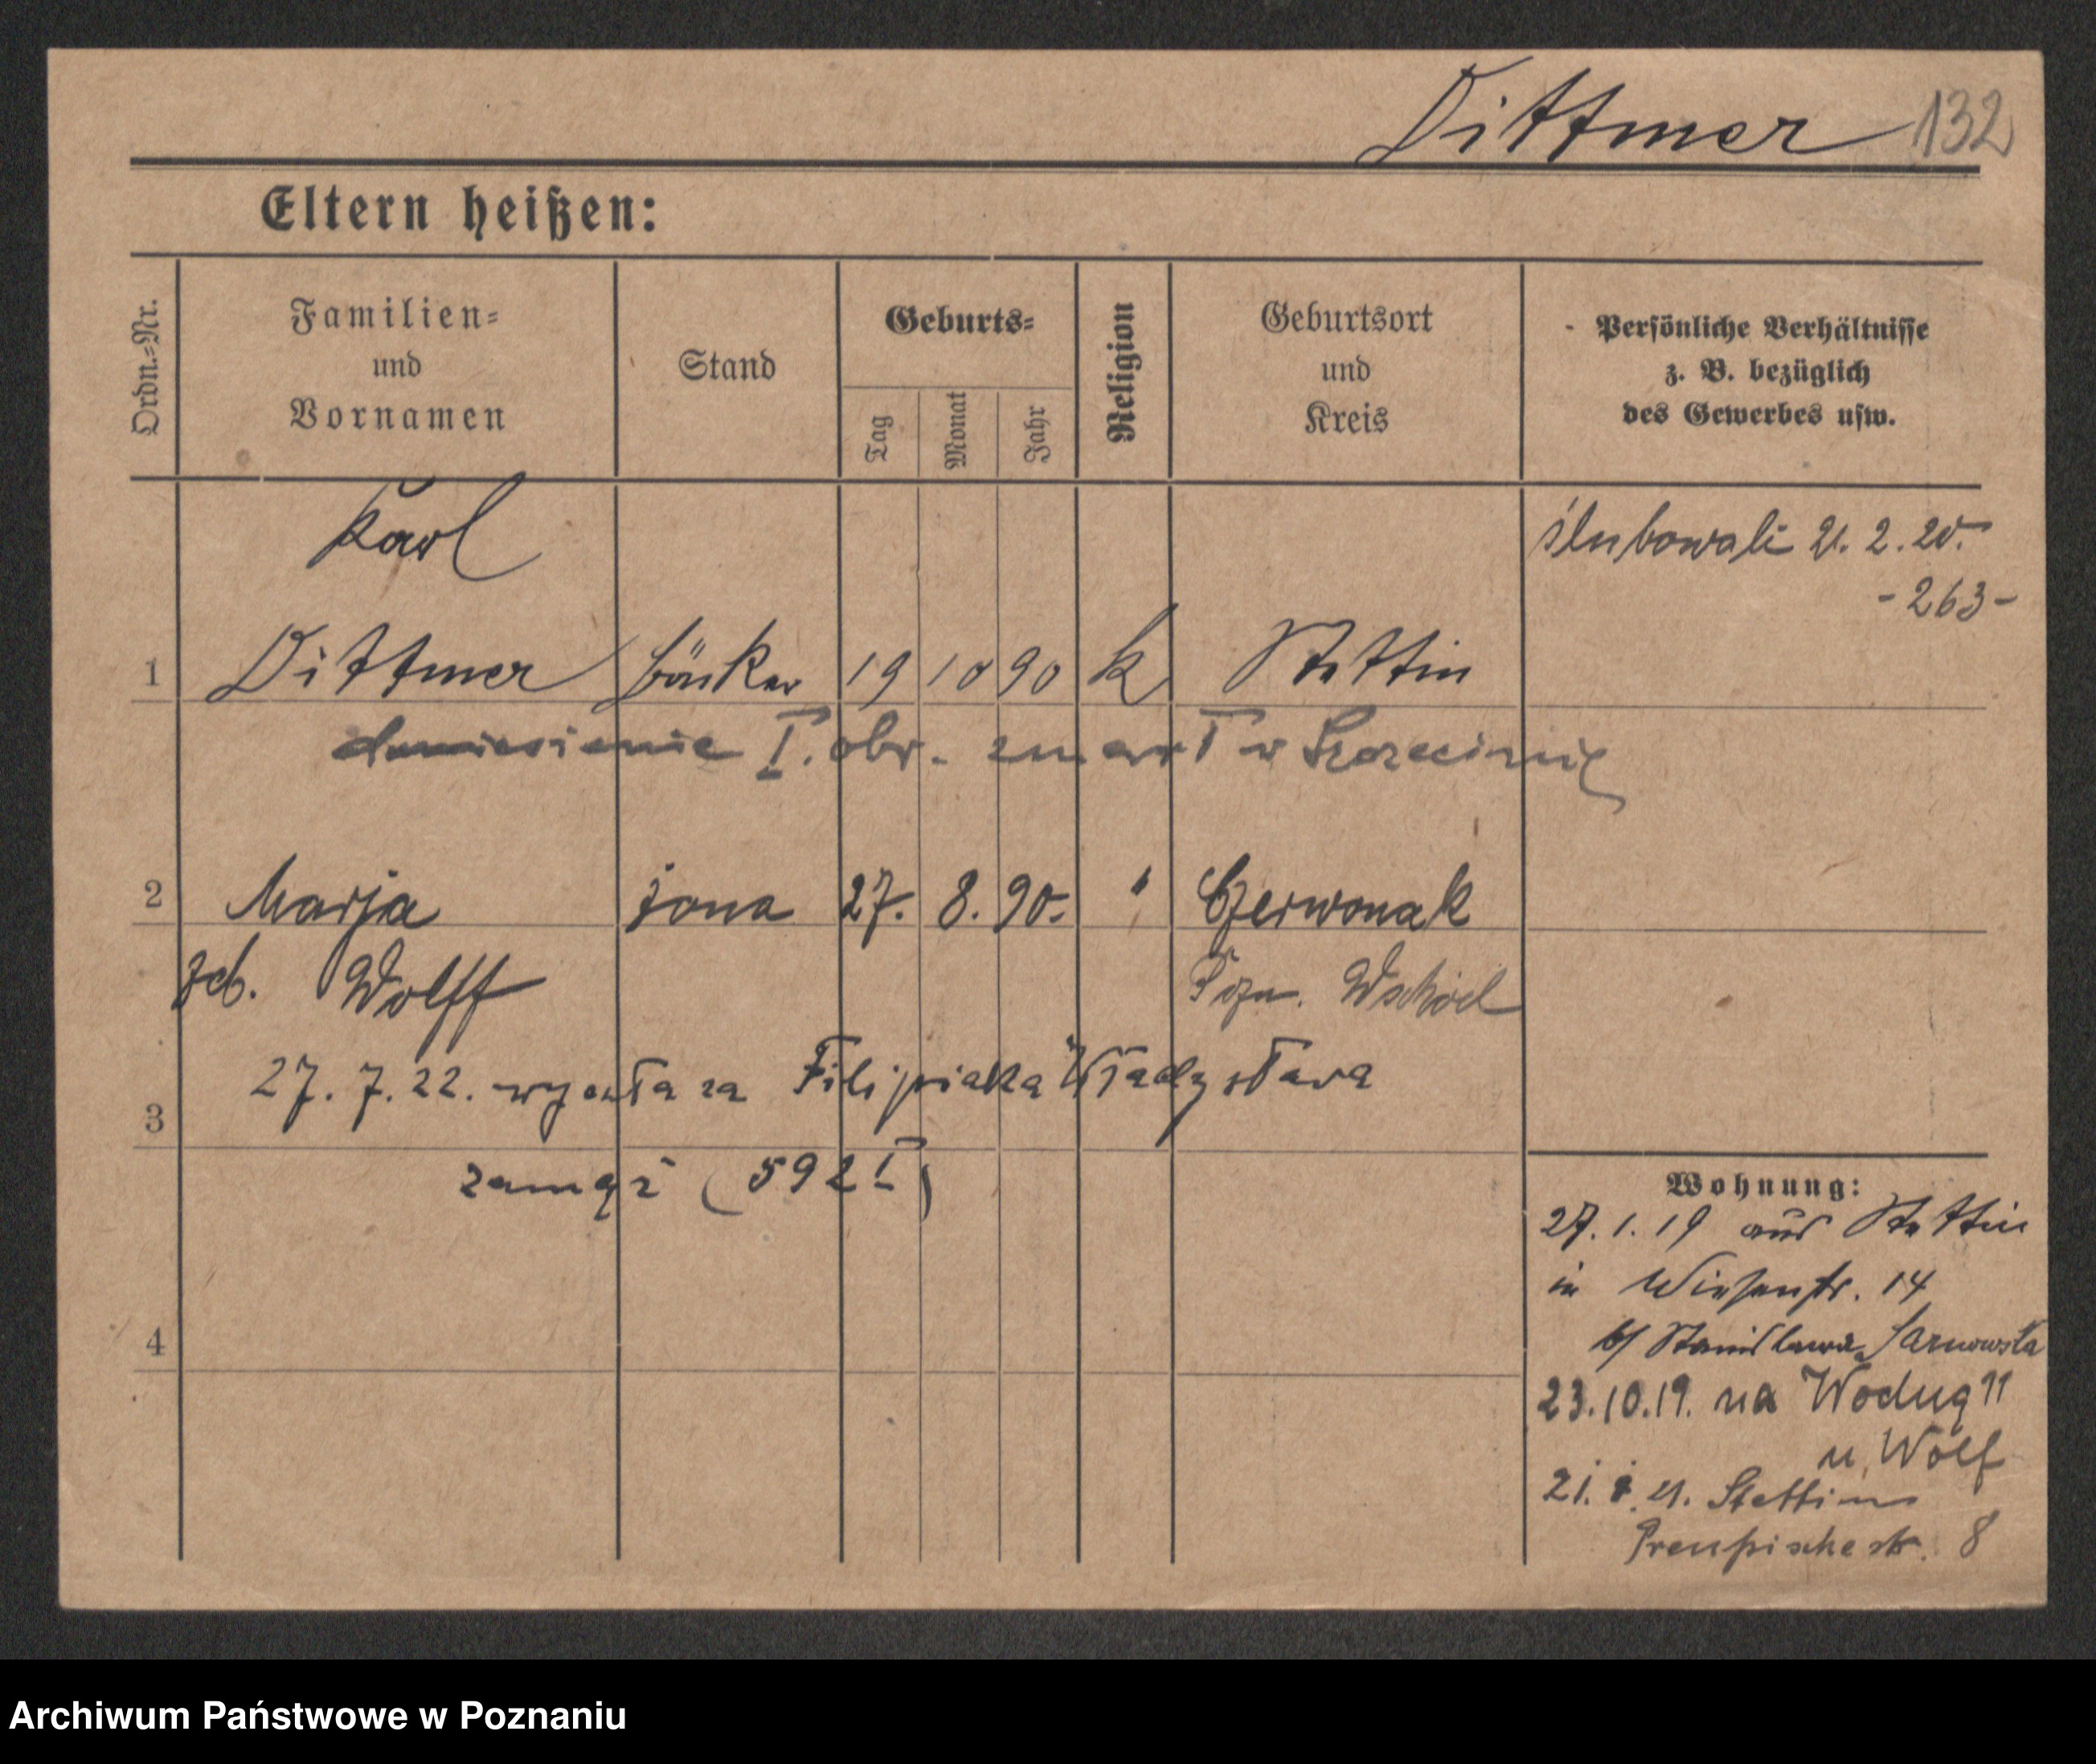 Dittmer 132
Eltern heißen:
Ordn.-Nr.
Familien-
und
Vornamen
Stand
Geburts-
Tag
Monat
Jahr
Religion
Geburtsort
und
Kreis
Persönliche Verhältnisse
z. B. bezüglich
des Gewerbes usw.
Karl
ślubowali 21. 2. 20.
- 263 -
1 Dittmer 19 10 90 k Stettin
doniesienie I. obw. zmarł w Szczecinie
2 Marja żona 27. 8. 90. " Czerwonak
geb. Wolff Pozn. Wschód
27. 7. 22. wyszła za Filipiaka Władysława
3
zamąż (592 I)
Wohnung:
27. 1. 19 aus Stettin
in Wiesenstr. 14
b/ Stanislawa Sarnowska
23. 10. 19. na Wodną 11
u Wolf
4
21. Stettin
Preußischestr. 8
Archiwum Państwowe w Poznaniu